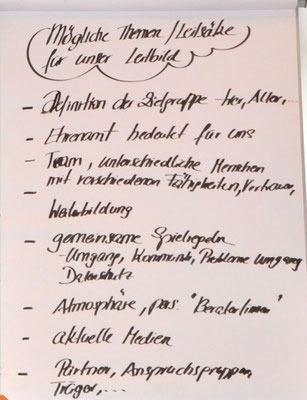 Mögliche Themen / Leitsätze
für unser Leitbild
- Definition der Zielgruppe hier, Alter, ...
- Ehrenamt bedeutet für uns
- Team, unterschiedliche Menschen
- mit verschiedenen Fähigkeiten,
Weiterbildung
- gemeinsame Spielregeln
- Umgang, Kommunik, Probleme Umgang
Datenschutz
- Atmosphäre, pos. "BeraterInnen"
- aktuelle Medien
- Partner, Anspruchsgruppen,
Träger, ...